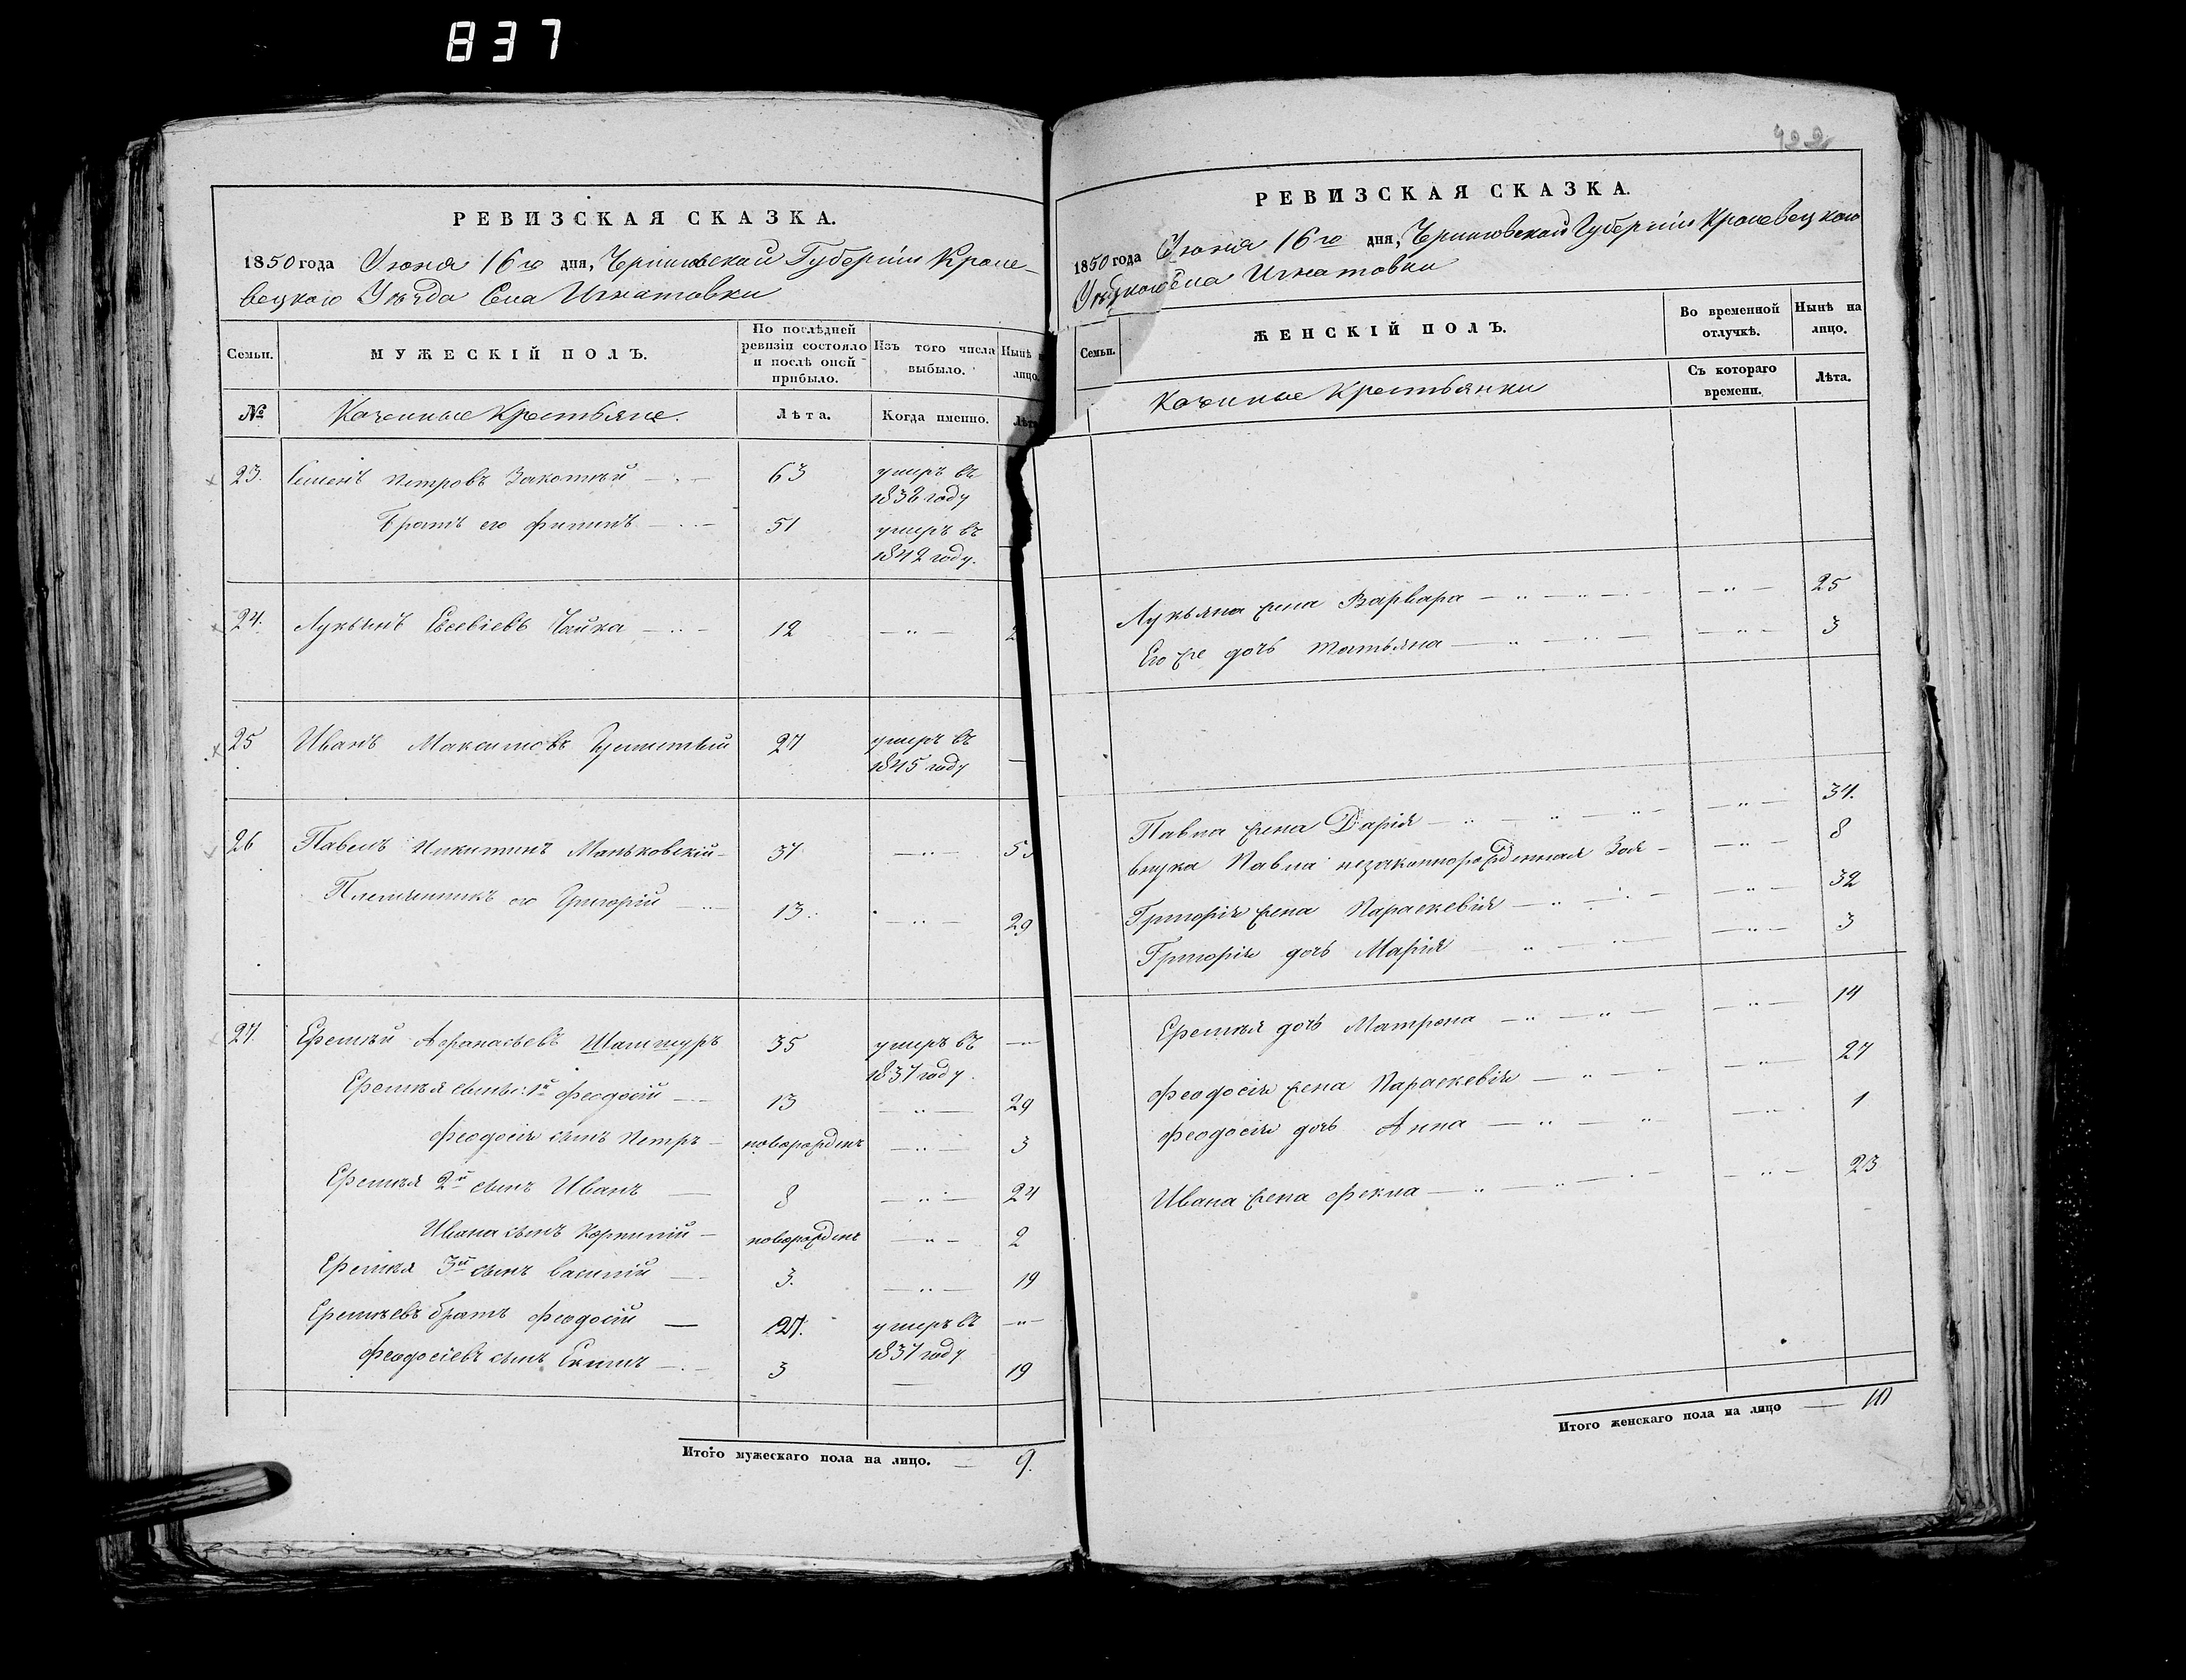 837
422
РЕВИЗСКАЯ СКАЗКА.
1850 года Июня 16го дня, Черниговской Губерніи Кроле-
вецкого Уѣзда Села Игнатовки
Семьи.
МУЖЕСКІЙ ПОЛЪ.
По послѣдней
ревизіи состояло
и послѣ оной
прибыло.
Изъ того числа
выбыло.
Нынѣ
лицо.
№
Казенные Крестьяне.
Лѣта.
Когда именно.
Лѣта
23. Семенъ Петровъ 63 умеръ въ
1838 году
Братъ его Филипъ 51 умеръ въ
1842 году.
24. Лукьянъ Евсевіевъ Чайка 12 2
25 Иванъ Максимовъ 27 умеръ въ
1845 году
26 Павелъ Никитинъ Маньковскій 37 53
Племянникъ его Григорій 13. 29
27. Еремѣй Афанасьевъ Шаштуръ 35 умеръ въ
1837 году.
Еремѣя сыны: 1й Феодосій 13 29
Феодосія сынъ Петръ новорожденъ 3
Еремѣя 2й сынъ Иванъ 8 24
Ивана сынъ Корнилій новорожден 2
Еремѣя 3й сынъ Василій 3. 19
Еремѣевъ братъ Феодосій 27. умеръ въ
1837 году
Феодосіевъ сынъ 3 19
Итого мужескаго пола на лицо. 9.
РЕВИЗСКАЯ СКАЗКА.
1850 года Июня 16го дня, Черниговской Губерніи Кролевецкого
Уѣзда Села Игнатовки
Семьи.
ЖЕНСКІЙ ПОЛЪ.
Во временной
отлучкѣ.
Нынѣ на
лицо.
Казенные Крестьянки
Съ котораго
времени.
Лѣта.
Лукьяна жена Варвара 25
Его же дочь Татьяна 3
Павла жена Дарія 34.
внука Павла незаконнорожденная Зоя 8
Григорія жена Параскевія 32
Григорія дочь Марія 3
Еремѣя дочь Матрона 14
Феодосія жена Параскевія 27
Феодосія дочь Анна 1
Ивана жена Фекла 23
Итого женскаго пола на лицо 10